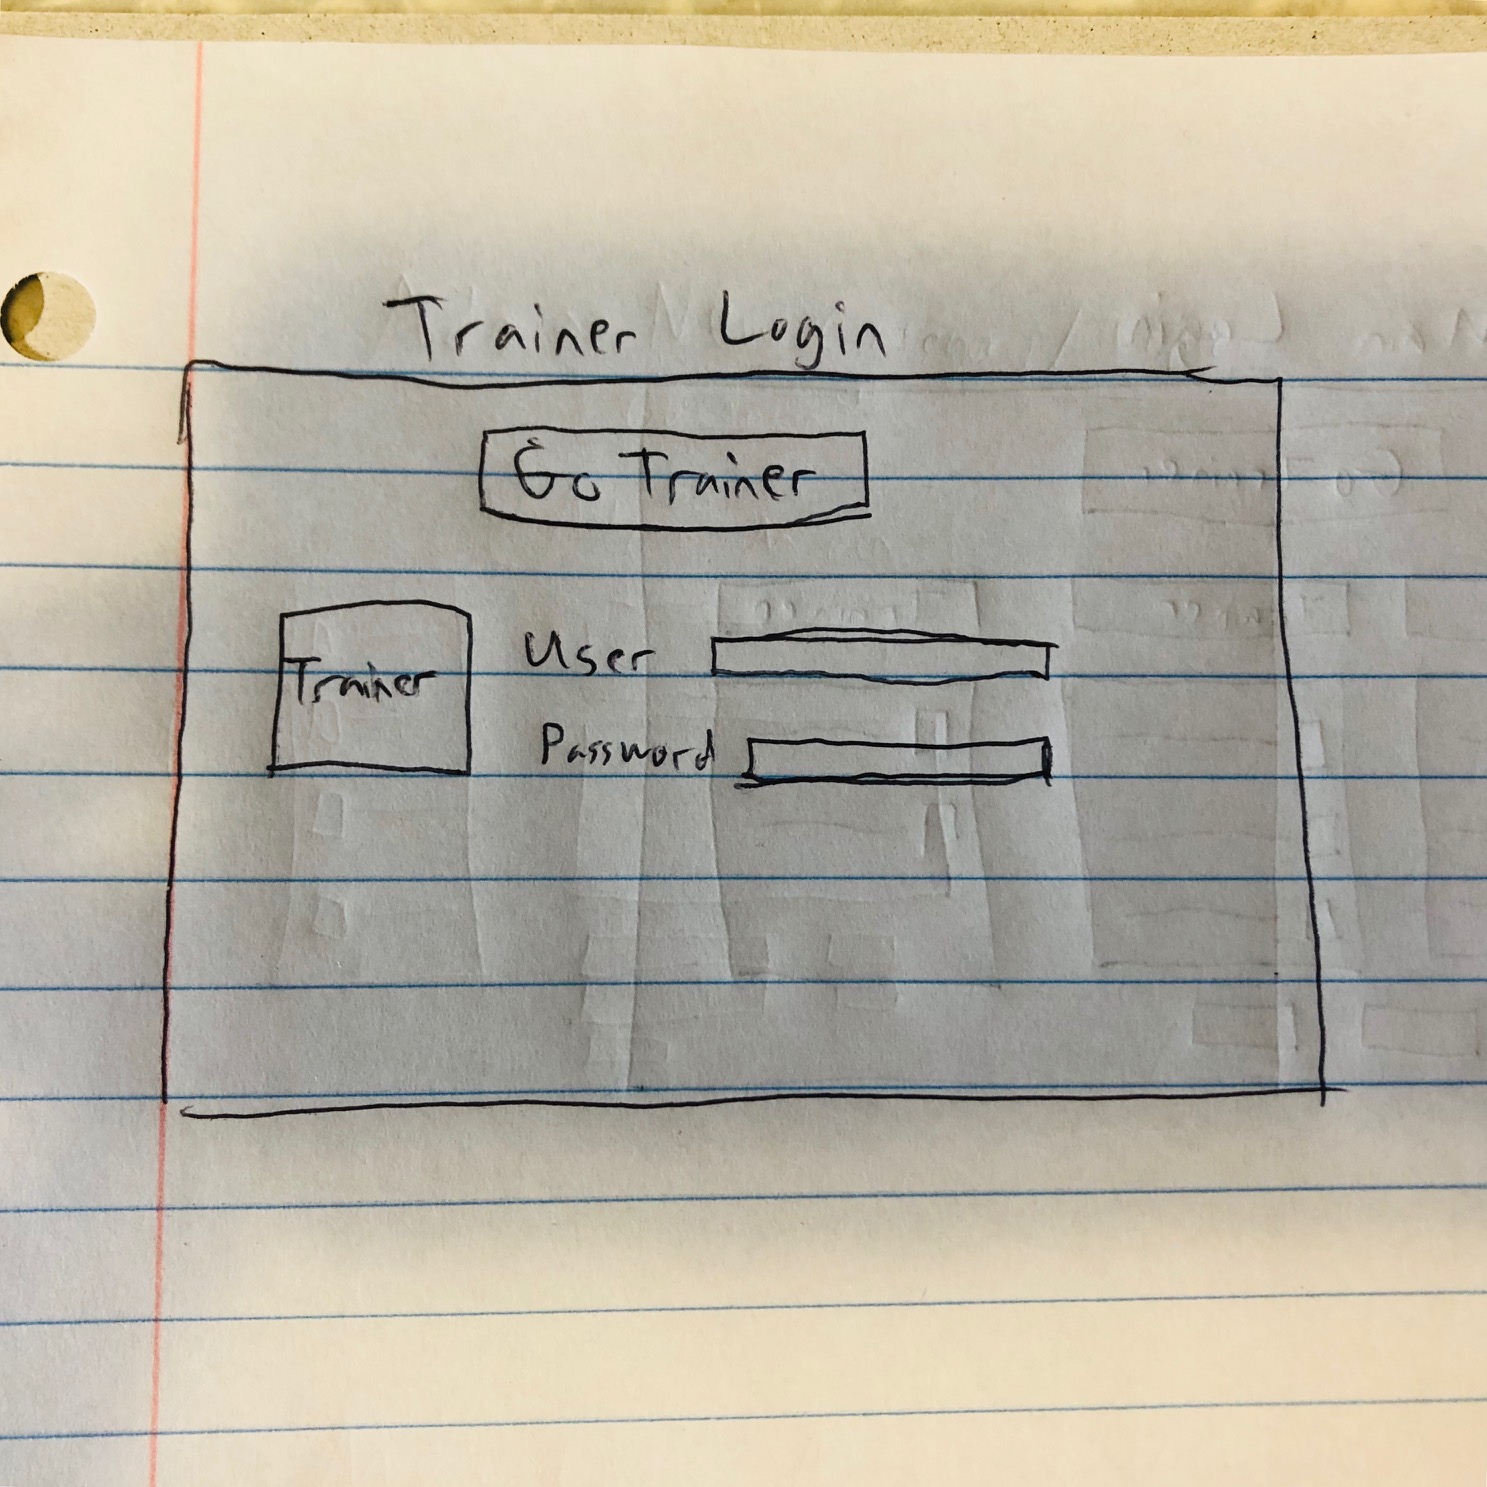 Trainer Login
Go Trainer
Trainer
User
Password